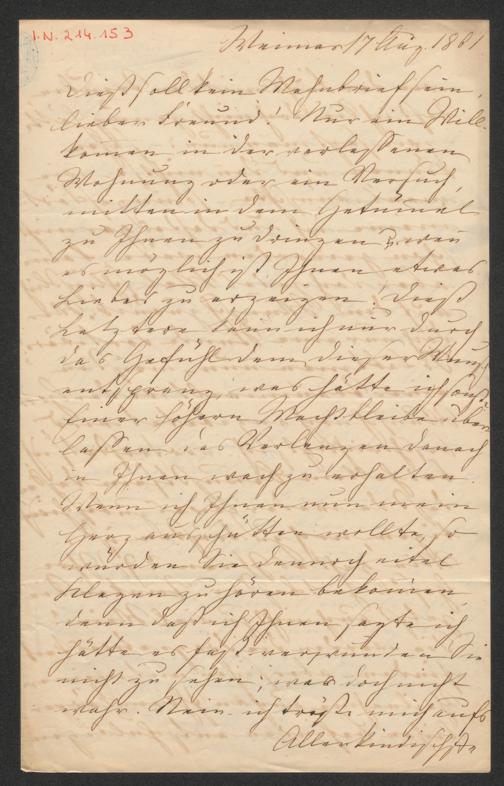 I.N. 214.153
Weimar 17 Aug. 1881
Dieß soll kein Mahnbrief sein,
lieber Freund! Nur ein Will-
komen in der verlassenen
Wohnung oder ein Versuch,
mitten in dem Getümel
zu Ihnen zu dringen u. wen
es möglich ist Ihnen etwas
Liebes zu erzeigen! Dieß
Letztere kann ich nur durch
das Gefühl dem dieser Wunsch
entsprang, was hätte ich sonst
Einer höhern Macht bleibe über-
lassen das Verlangen danach
in Ihnen wach zu erhalten.
Wenn ich Ihnen nun mein
Herz ausschütten wollte, so
würden Sie dennoch eitel
Klagen zu hören bekomen,
denn daß ich Ihnen sagte ich
hätte es fast verwunden Sie
nicht zu sehen, wär doch nicht
wahr. Nein ich tröste mich aufs
Allerkindischste